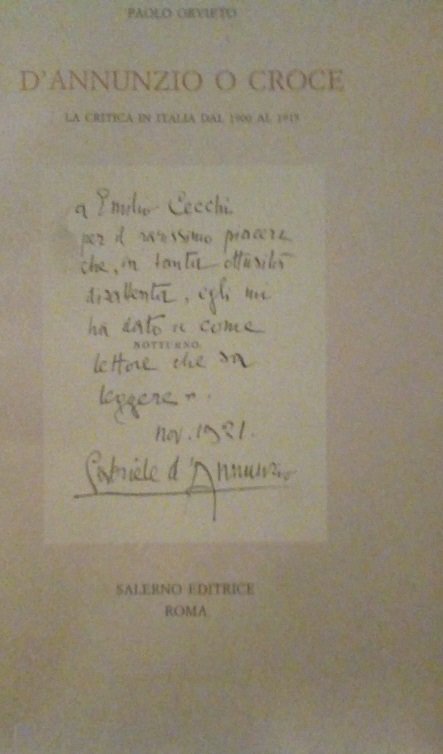 PAOLO ORVIETO
D'ANNUNZIO O CROCE
LA CRITICA IN ITALIA DAL 1900 AL 1915
a Emilio Cecchi
per il rarissimo piacere
che, in tanta ottusità
disattenta, egli mi
ha dato "come
NOTTURNO
lettore che sa
leggere".
nov. 1921.
Gabriele d'Annunzio
SALERNO EDITRICE
ROMA